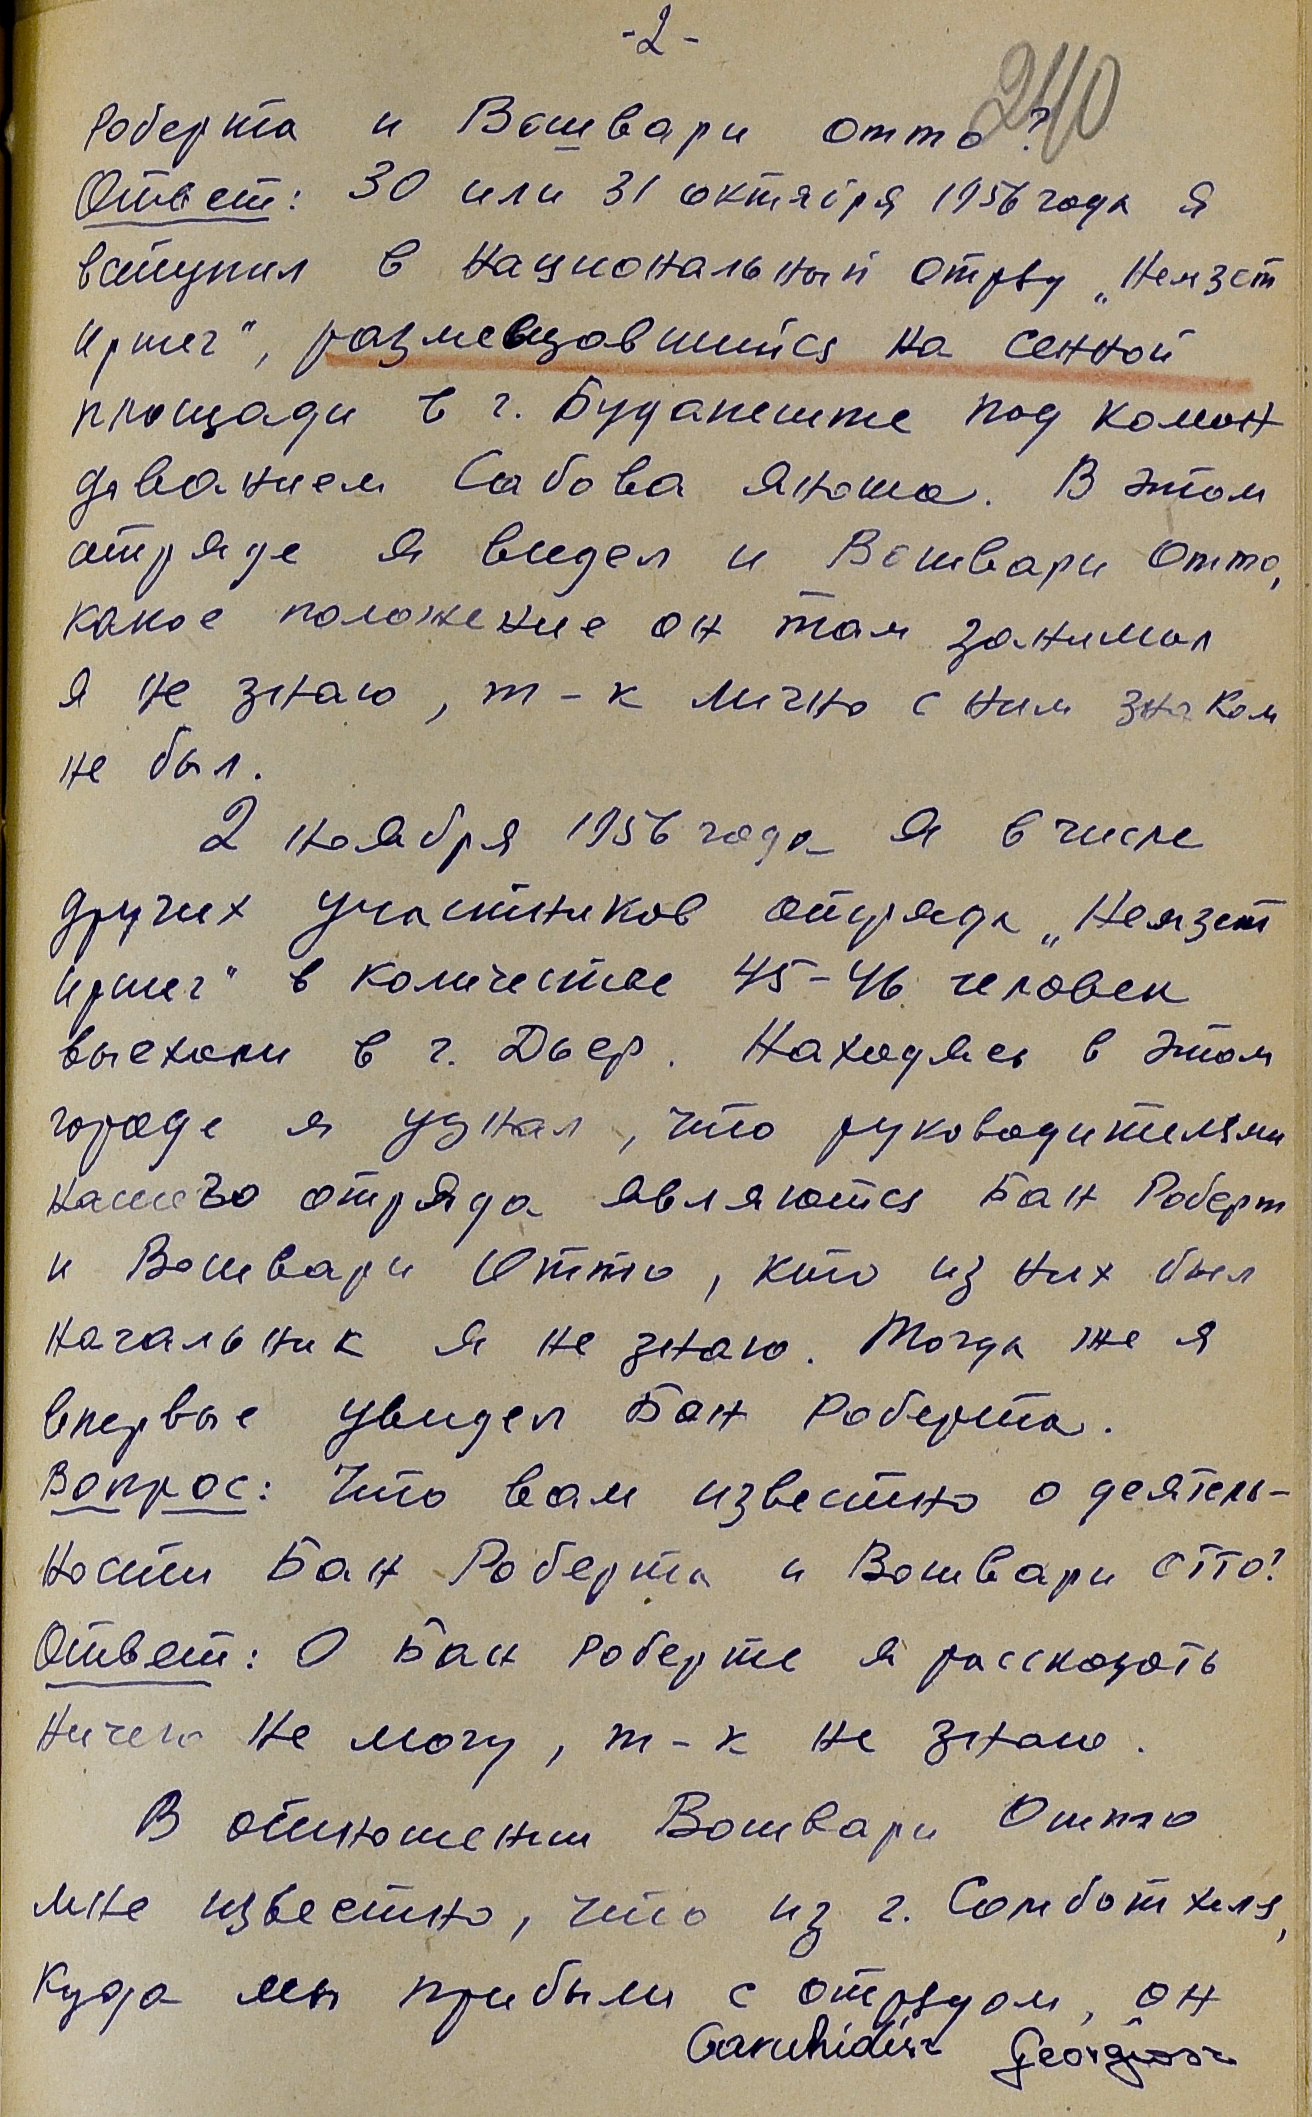 -2-
240
Роберта и Вошвари Отто?
Ответ: 30 или 31 октября 1956 года я
вступил в национальный отряд „Немзет
иршег", размещавшийся на Сенной
площади в г. Будапеште под коман
дованием Сабова Яноша. В этом
отряде я видел и Вошвари Отто,
какое положение он там занимал
я не знаю, т-к лично с ним знаком
не был.
2 ноября 1956 года я в числе
других участников отряда „Немзет
иршег" в количестве 45-46 человек
выехали в г. Дьер. Находясь в этом
городе я узнал, что руководителями
нашего отряда являются Бан Роберт
и Вошвари Отто, кто из них был
начальник я не знаю. Тогда же я
впервые увидел Бан Роберта.
Вопрос: Что вам известно о деятель-
ности Бан Роберта и Вошвари Отто?
Ответ: О Бан Роберте я рассказать
ничего не могу, т-к не знаю.
В отношении Вошвари Отто
мне известно, что из г. Сомботхеля,
куда мы прибыли с отрядом, он